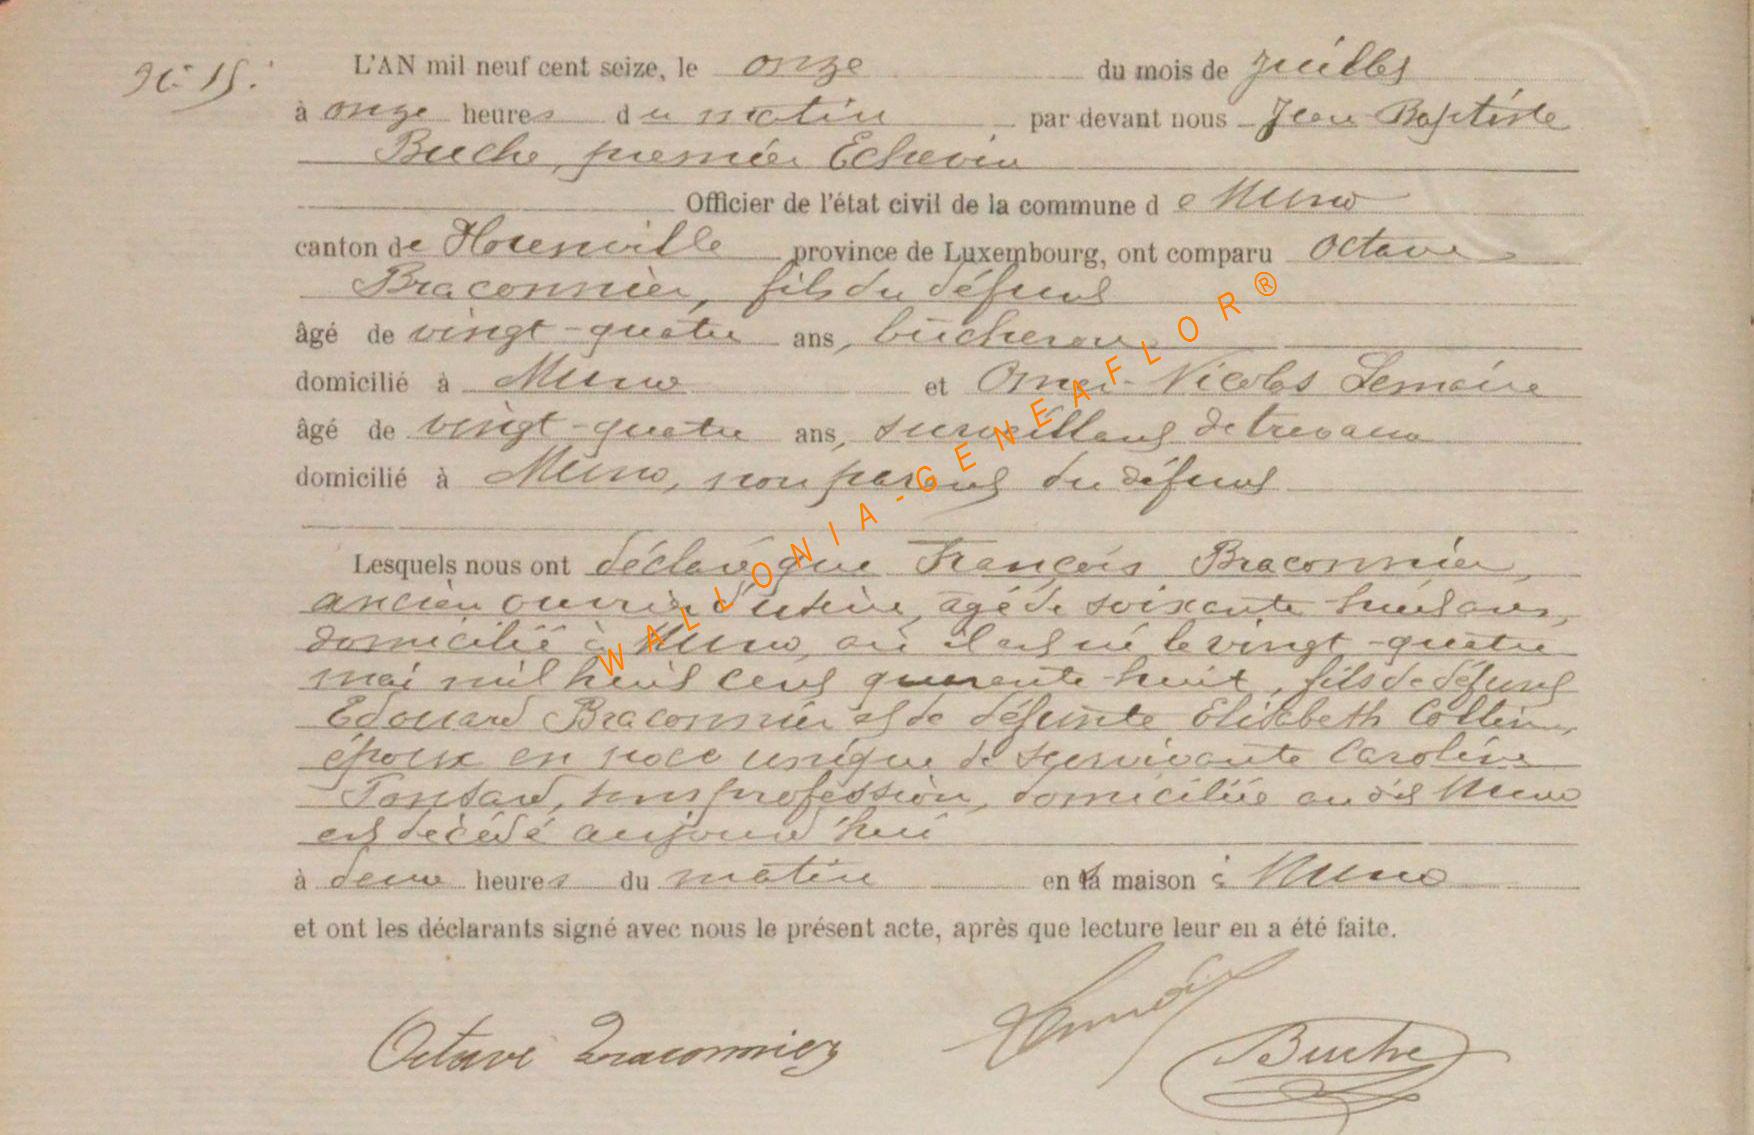 N° 15.
L'AN mil neuf cent seize, le onze du mois de juillet
à onze heures du matin par devant nous Jean Baptiste
Buche, premier Echevin
Officier de l'état civil de la commune de Muno
canton de Florenville province de Luxembourg, ont comparu Octave
Braconnier, fils du défunt
âgé de vingt-quatre ans, bûcheron
domicilié à Muno et Omer-Nicolas Lemaire
âgé de vingt-quatre ans, surveillant de travaux
domicilié à Muno, non parent du défunt
Lesquels nous ont déclaré que François Braconnier,
ancien ouvrier d'usine, âgé de soixante huit ans,
domicilié à Muno, où il est né le vingt-quatre
mai mil huit cent quarante-huit, fils de défunt
Edouard Braconnier et de défunte Elisabeth Collin,
époux en noce unique de survivante Caroline
Ponsard, sans profession, domiciliée au dit Muno
est décédé aujourd'hui
à deux heures du matin en sa maison à Muno
et ont les déclarants signé avec nous le présent acte, après que lecture leur en a été faite.
Octave Braconnier Buche
WALLONIA-GENEAFLOR®